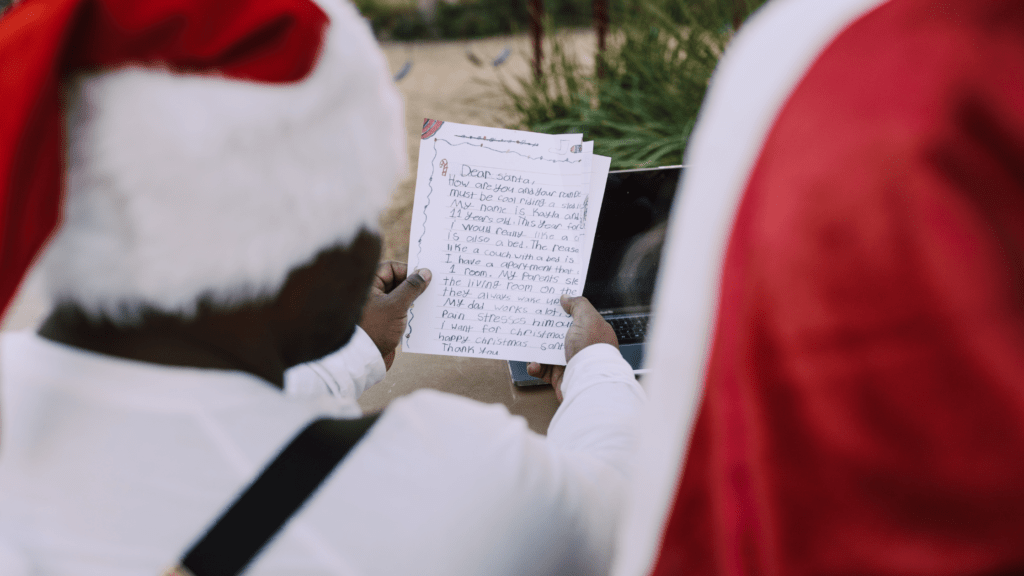 Dear santa,
How are you and your
must be cool riding a
My name is Kayla and
11 years old. This year for
I would really like a
is also a bed. The
like a couch with a bed is
I have a apartment
1 room. My parents
the living room on the
they always wake up
My dad works a lot.
Pain stresses him
I want for christmas
happy christmas
Thank you